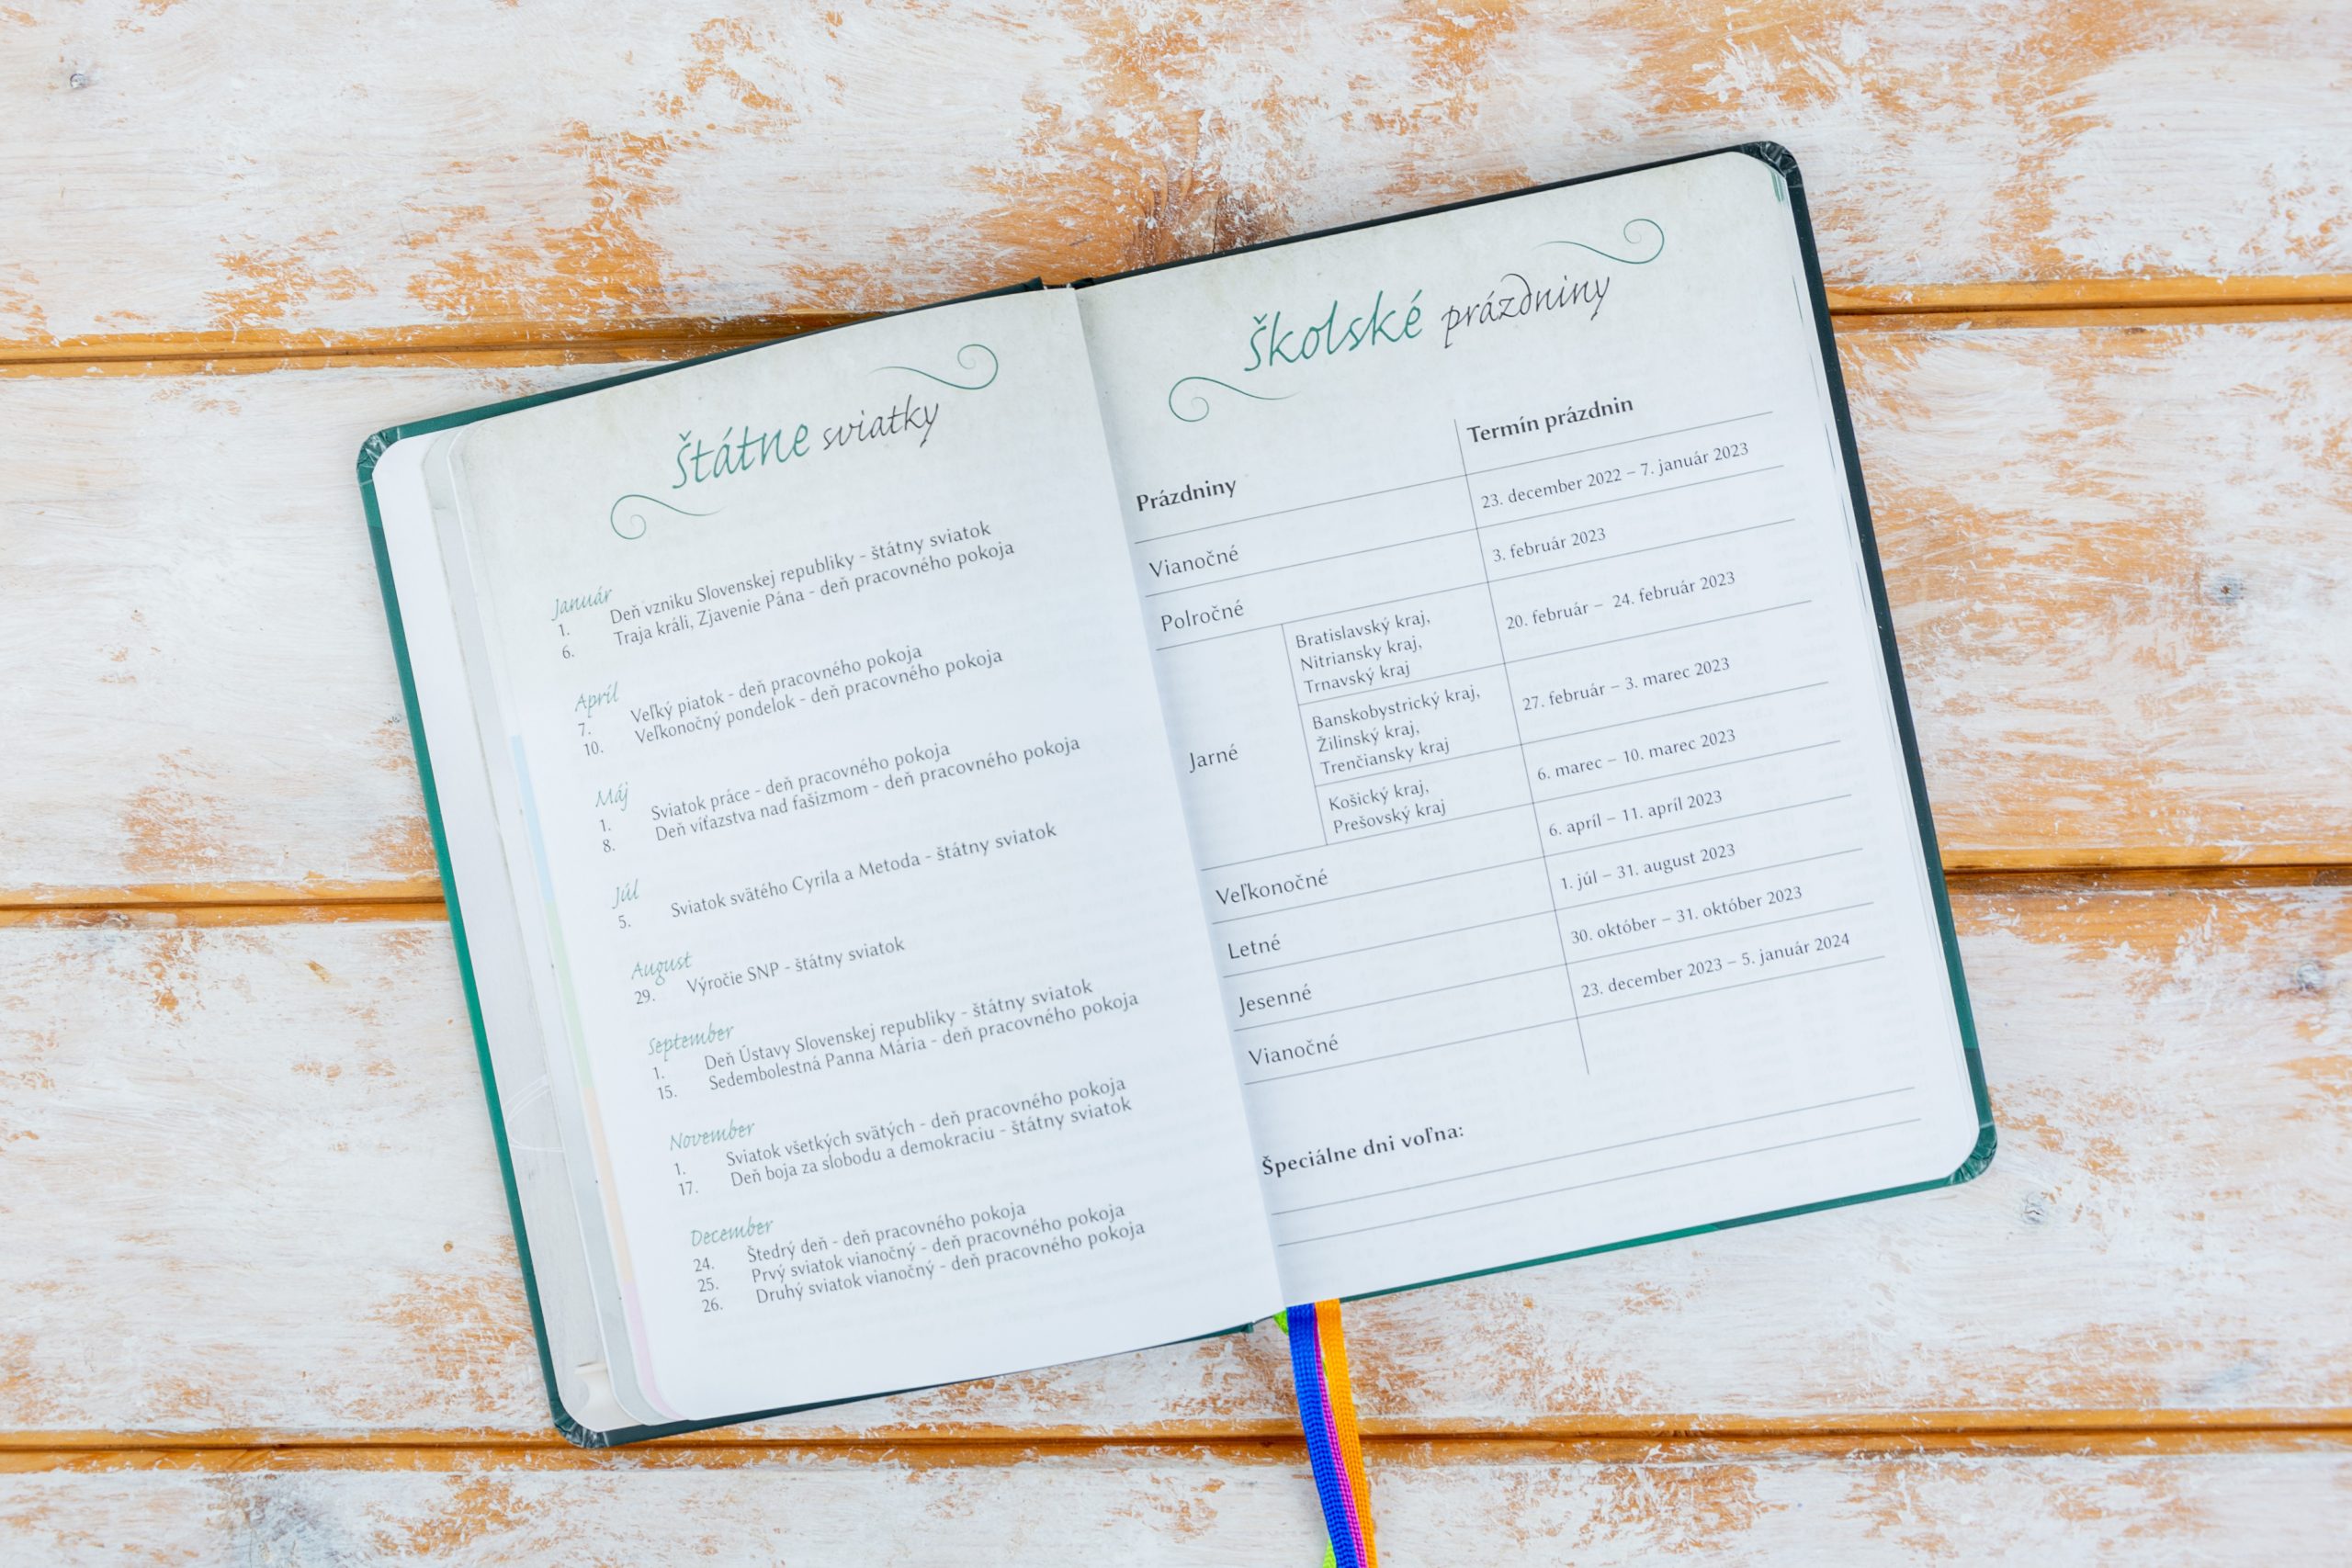 Štátne sviatky
Január
1. Deň vzniku Slovenskej republiky - štátny sviatok
6. Traja králi, Zjavenie Pána - deň pracovného pokoja
Apríl
7. Veľký piatok - deň pracovného pokoja
10. Veľkonočný pondelok - deň pracovného pokoja
Máj
1. Sviatok práce - deň pracovného pokoja
8. Deň víťazstva nad fašizmom - deň pracovného pokoja
Júl
5. Sviatok svätého Cyrila a Metoda - štátny sviatok
August
29. Výročie SNP - štátny sviatok
September
1. Deň Ústavy Slovenskej republiky - štátny sviatok
15. Sedembolestná Panna Mária - deň pracovného pokoja
November
1. Sviatok všetkých svätých - deň pracovného pokoja
17. Deň boja za slobodu a demokraciu - štátny sviatok
December
24. Štedrý deň - deň pracovného pokoja
25. Prvý sviatok vianočný - deň pracovného pokoja
26. Druhý sviatok vianočný - deň pracovného pokoja
Školské prázdniny
Prázdniny Termín prázdnin
Vianočné 23. december 2022 – 7. január 2023
Polročné 3. február 2023
Jarné
Bratislavský kraj,
Nitriansky kraj,
Trnavský kraj
20. február – 24. február 2023
Banskobystrický kraj,
Žilinský kraj,
Trenčiansky kraj
27. február – 3. marec 2023
Košický kraj,
Prešovský kraj
6. marec – 10. marec 2023
Veľkonočné 6. apríl – 11. apríl 2023
Letné 1. júl – 31. august 2023
Jesenné 30. október – 31. október 2023
Vianočné 23. december 2023 – 5. január 2024
Špeciálne dni voľna: